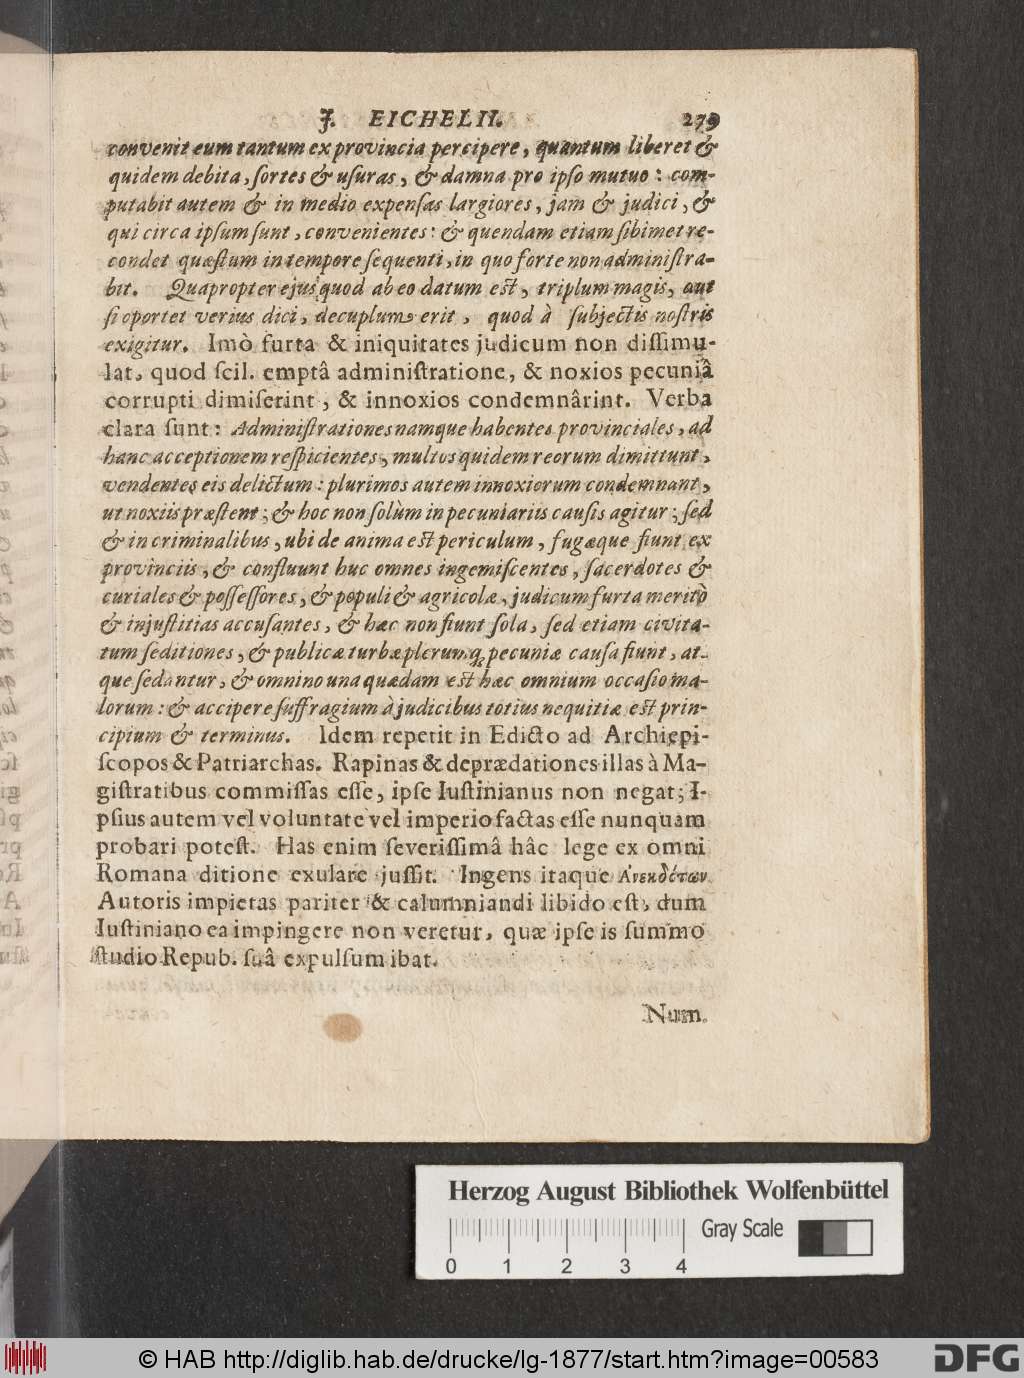 J. EICHELII. 279
convenit eum tantum ex provincia percipere, quantum liberet &
quidem debita, ſortes & uſuras, & damna pro ipſo mutuo: com-
putabit autem & in medio expenſas largiores, jam & judici, &
qui circa ipſum ſunt, convenientes: & quendam etiam ſibimet re-
condet quæſtum in tempore ſequenti, in quo forte non adminiſtra-
bit. Quapropter ejus quod ab eo datum eſt, triplum magis, aut
ſi oportet verius dici, decuplum erit, quod à ſubjectis noſtris
exigitur. Imò furta & iniquitates judicum non diſſimu-
lat, quod ſcil. emptâ adminiſtratione, & noxios pecuniâ
corrupti dimiſerint, & innoxios condemnârint. Verba
clara ſunt: Adminiſtrationes namque habentes provinciales, ad
hanc acceptionem reſpicientes, multos quidem reorum dimittunt,
vendentes eis delictum: plurimos autem innoxiorum condemnant,
ut noxiis præſtent; & hoc non ſolùm in pecuniariis cauſis agitur; ſed
& in criminalibus, ubi de anima eſt periculum, fugæque fiunt ex
provinciis, & confluunt huc omnes ingemiſcentes, ſacerdotes &
curiales & poſſeſſores, & populi & agricolæ, judicum furta meritò
& injuſtitias accuſantes, & hæc non fiunt ſola, ſed etiam civita-
tum ſeditiones, & publicæ turbæ plerumq; pecuniæ cauſa fiunt, at-
que ſedantur, & omnino una quædam eſt hæc omnium occaſio ma-
lorum: & accipere ſuffragium à judicibus totius nequitiæ eſt prin-
cipium & terminus. Idem repetit in Edicto ad Archiepi-
ſcopos & Patriarchas. Rapinas & deprædationes illas à Ma-
giſtratibus commiſſas eſſe, ipſe Iuſtinianus non negat; I-
pſius autem vel voluntate vel imperio factas eſſe nunquam
probari poteſt. Has enim ſeveriſſimâ hâc lege ex omni
Romana ditione exulare juſſit. Ingens itaque Ἀνεκδότων
Autoris impietas pariter & calumniandi libido eſt, dum
Iuſtiniano ea impingere non veretur, quæ ipſe is ſummo
ſtudio Repub. ſuâ expulſum ibat.
Num.
Herzog August Bibliothek Wolfenbüttel
Gray Scale
0 1 2 3 4
© HAB http://diglib.hab.de/drucke/lg-1877/start.htm?image=00583
DFG